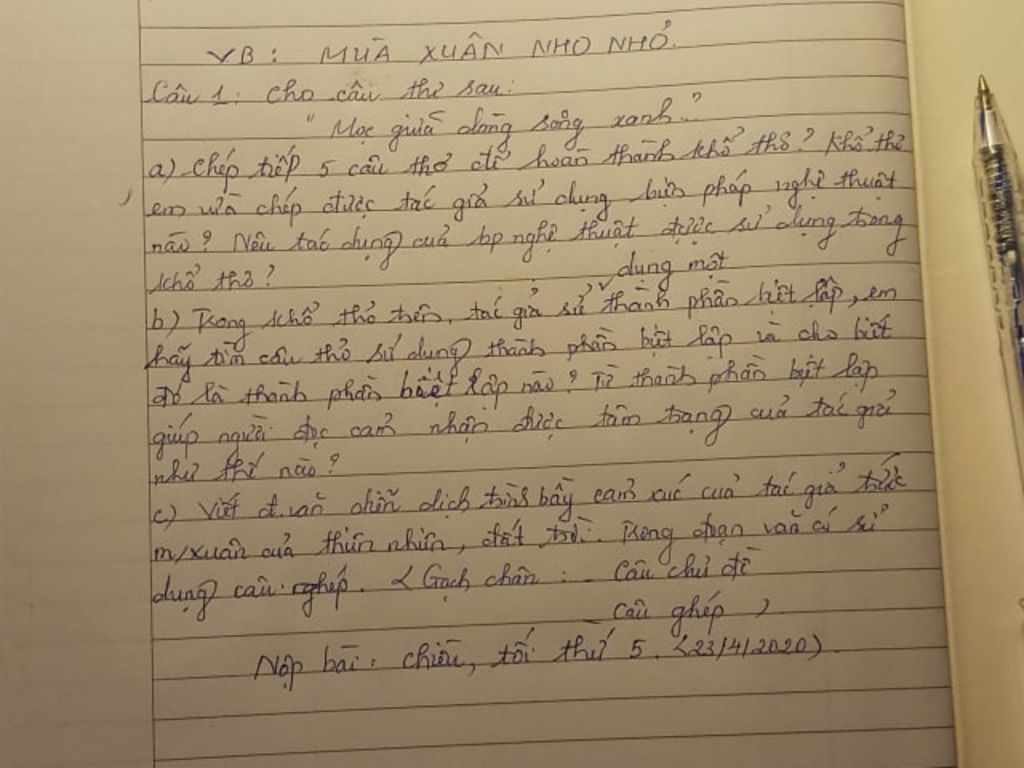 VB: MÙA XUÂN NHO NHỎ.
Câu 1: Cho câu thơ sau:
"Mọc giữa dòng sông xanh."
a) Chép tiếp 5 câu thơ để hoàn thành khổ thơ? Khổ thơ
em vừa chép được tác giả sử dụng biện pháp nghệ thuật
nào? Nêu tác dụng của bp nghệ thuật được sử dụng trong
khổ thơ?
dụng một
b) Trong khổ thơ trên, tác giả sử thành phần biệt lập, em
hãy tìm câu thơ sử dụng thành phần biệt lập và cho biết
đó là thành phần biệt lập nào? Từ thành phần biệt lập
giúp người đọc cảm nhận được tâm trạng của tác giả
như thế nào?
c) Viết đ.văn diễn dịch trình bày cảm xúc của tác giả trước
m/xuân của thiên nhiên, đất trời. Trong đoạn văn có sử
dụng câu ghép. (Gạch chân: Câu chủ đề
câu ghép)
Nộp bài: chiều, tối thứ 5. (23/4/2020).